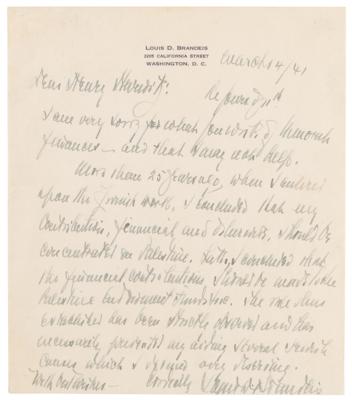 LOUIS D. BRANDEIS
2205 CALIFORNIA STREET
WASHINGTON, D. C.
March 4/41
Dear Henry
I am very sorry for what you write of Menorah
finances — and that I may not help.
More than 25 years ago, when I entered
upon the Jewish work, I concluded that my
contributions, financial and otherwise, should be
concentrated on Palestine. Later, I concluded that
the financial contributions should be made to the
Palestine Endowment Funds Inc. The rule thus
established has been strictly observed and has
necessarily prevented my aiding several Jewish
causes which I deemed very deserving.
With best wishes — Cordially
Louis D. Brandeis